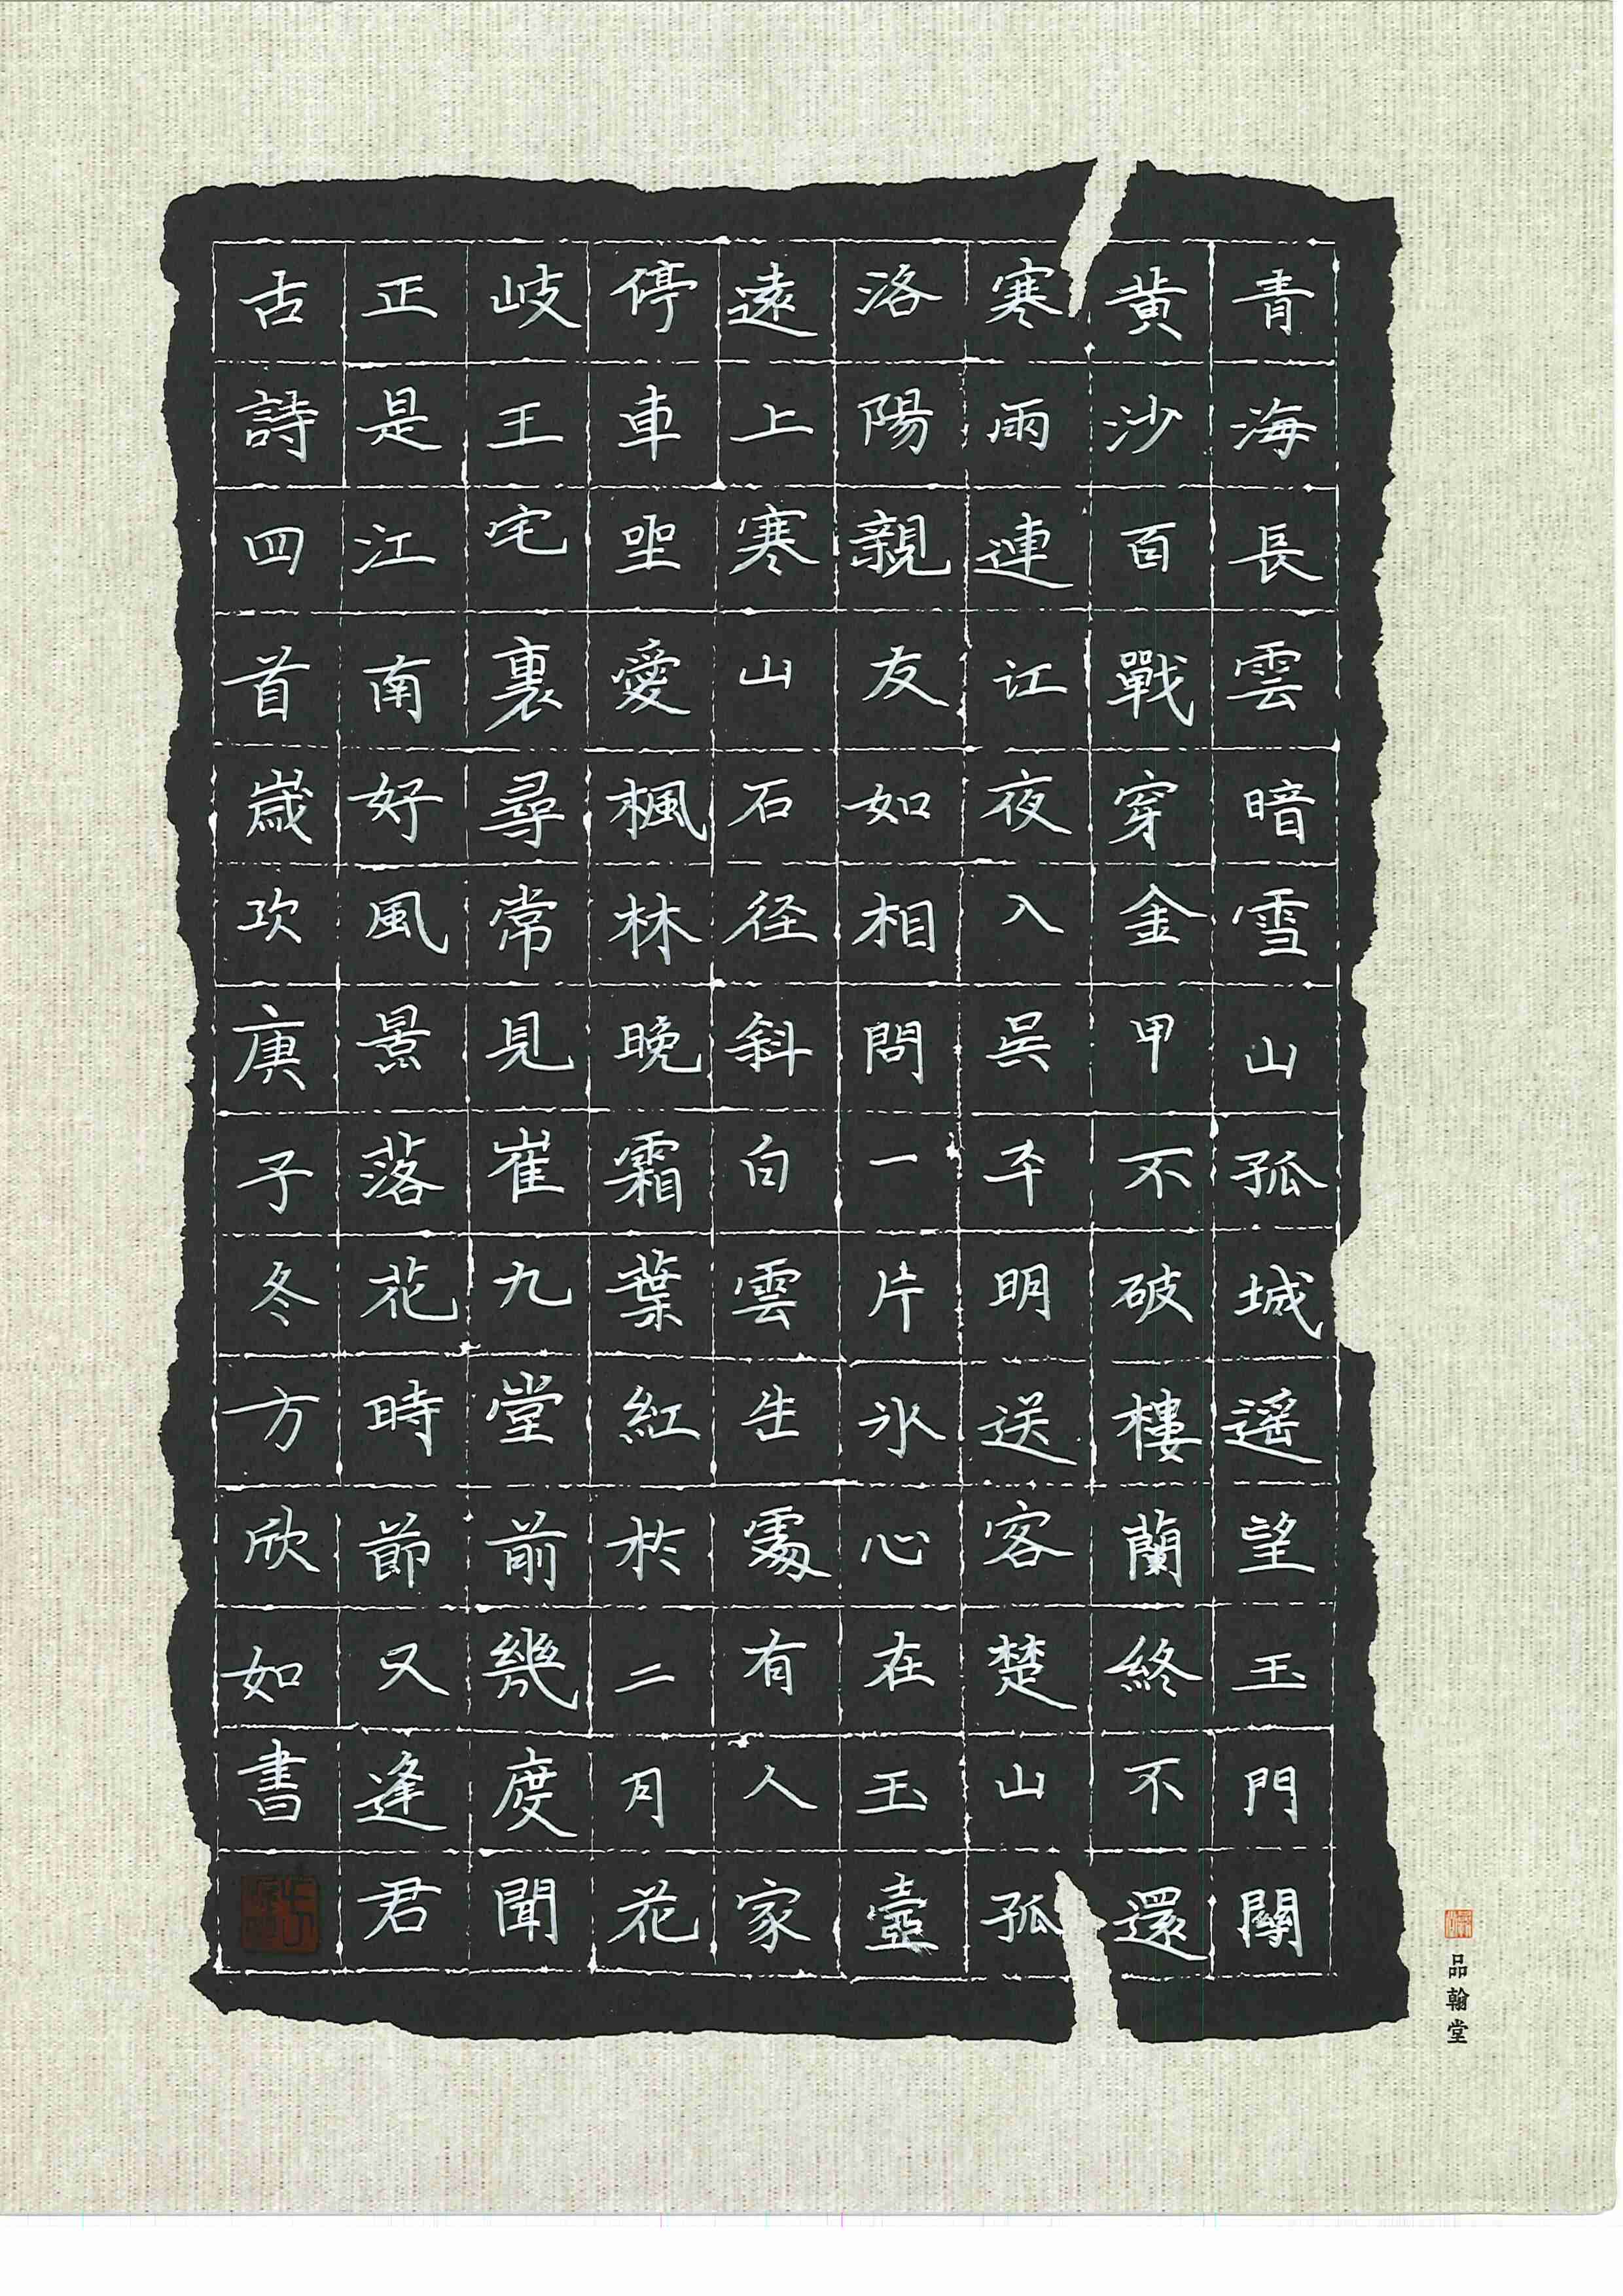 青海長雲暗雪山孤城遥望玉門關
黄沙百戰穿金甲不破樓蘭終不還
寒雨連江夜入吳平明送客楚山孤
洛陽親友如相問一片氷心在玉壺
遠上寒山石径斜白雲生處有人家
停車坐愛楓林晚霜葉紅於二月花
岐王宅裏尋常見崔九堂前幾度聞
正是江南好風景落花時節又逢君
古詩四首歲次庚子冬方欣如書
品翰堂